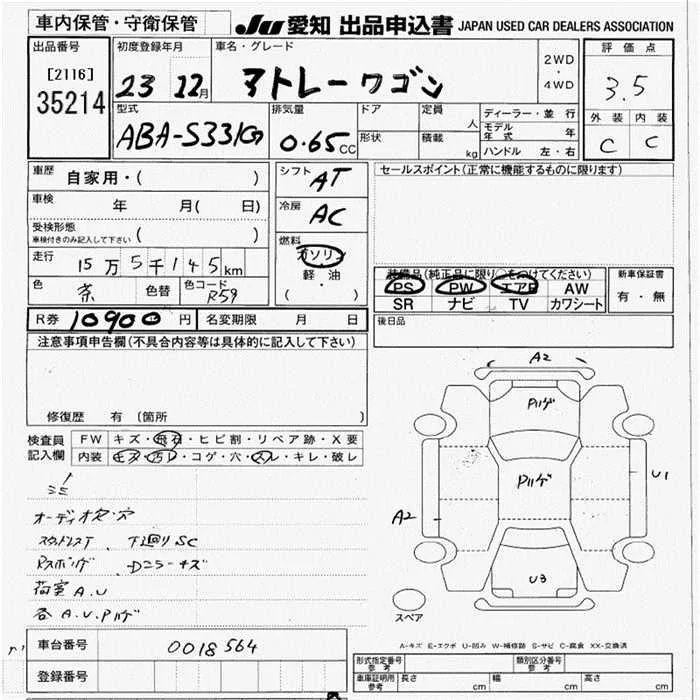 車内保管・守衛保管
JU 愛知 出品申込書 JAPAN USED CAR DEALERS ASSOCIATION
出品番号
[2116]
35214
初度登録年月
23 12月
車名・グレード
アトレーワゴン
2WD
・
4WD
評価点
3.5
外装 内装
C C
型式
ABA-S331G
排気量
0.65CC
ドア
形状
定員
人
積載
kg
ディーラー・並行
モデル年式 年
ハンドル 左・右
車歴 自家用・( )
車検 年 月( 日)
受検形態
車検付きのみ記入して下さい ( )
走行 15万5千145km
色 茶 色替 色コード R59
シフト AT
冷房 AC
燃料
ガソリン
・
軽・油
( )
セールスポイント(正常に機能するものに限ります)
装備品(純正品に限り○をつけてください)
PS PW エアB AW
SR ナビ TV カワシート
新車保証書
有・無
R券 10900円 名変期限 月 日
後日品
注意事項申告欄(不具合内容等は具体的に記入して下さい)
修復歴 有(箇所 )
検査員記入欄
FW キズ・飛石・ヒビ割・リペア跡・X要
内装 キズ・汚レ・コゲ・穴・スレ・キレ・破レ
オーディオ欠・穴
スタッドレスT 下廻りSC
荷室 A.U
各 A.U.Pハゲ
A2
Pハゲ
Pハゲ
U1
A2
U3
スペア
A-キズ E-エクボ U-凹み W-補修跡 S-サビ C-腐食 XX-交換済
車台番号 0018564
登録番号
形式指定番号 参考
類別区分番号 参考
車庫証明用 参考
長さ cm
幅 cm
高さ cm